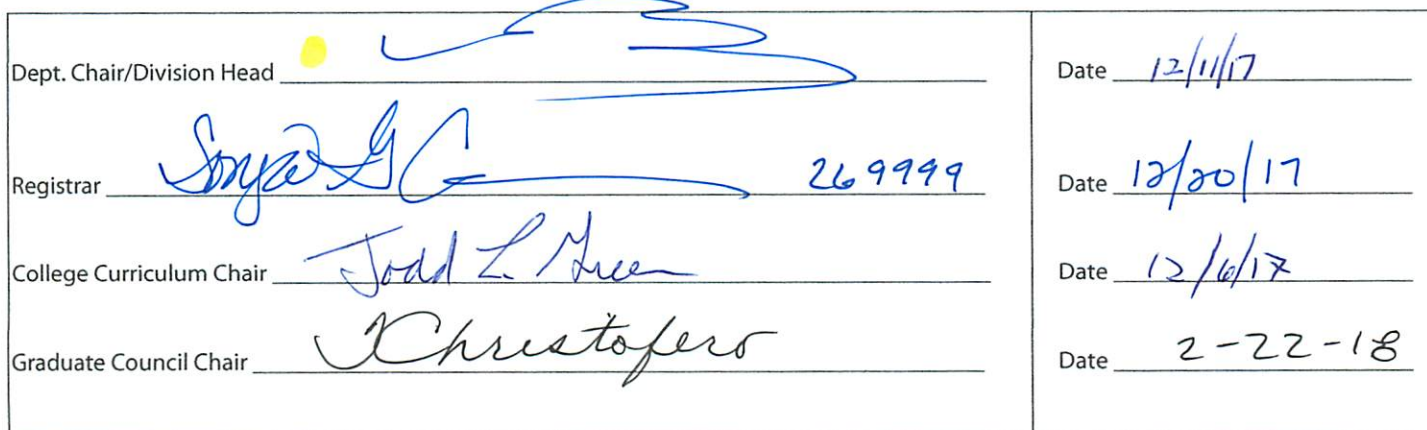 Dept. Chair/Division Head Date 12/11/17
Registrar Sonja G 269999 Date 12/20/17
College Curriculum Chair Todd L. Green Date 12/6/17
Graduate Council Chair TChristofero Date 2-22-18